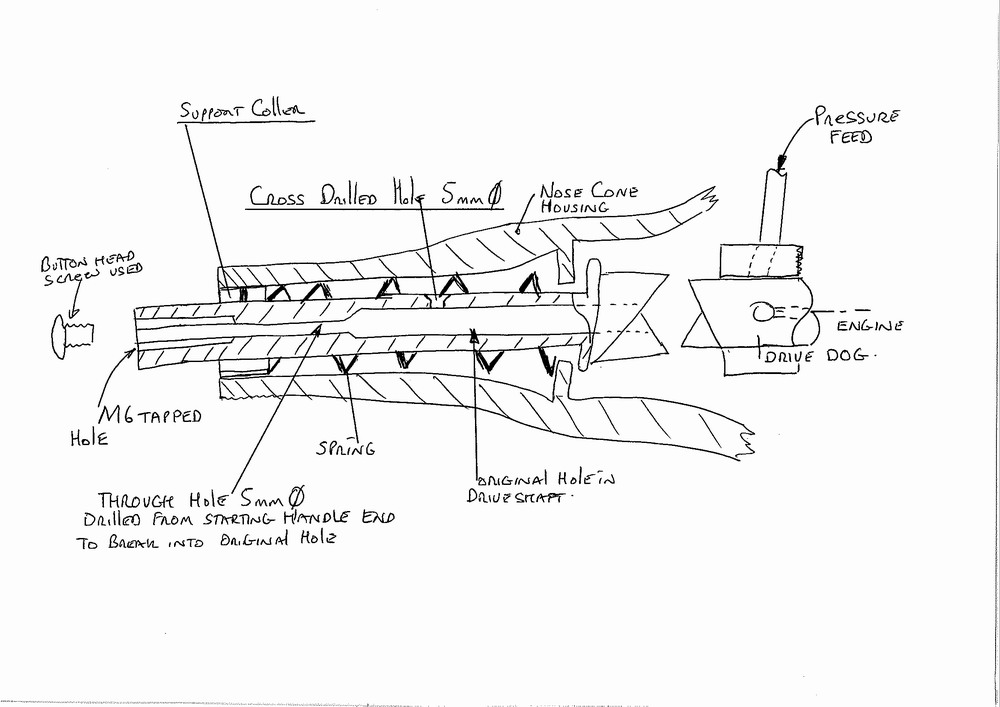 SUPPORT Coller
PRESSURE
FEED
CROSS DRilled Hole 5mm Ø
NOSE CONE
HOUSING
BUTTON HEAD
SCREW USED
ENGINE
DRIVE DOG.
M6 TAPPED
Hole
SPRING
ORIGINAL Hole in
DRIVESHAFT.
THROUGH Hole 5mm Ø
DRilled FROM STARTING HANDLE END
TO BREAK INTO ORIGINAl Hole